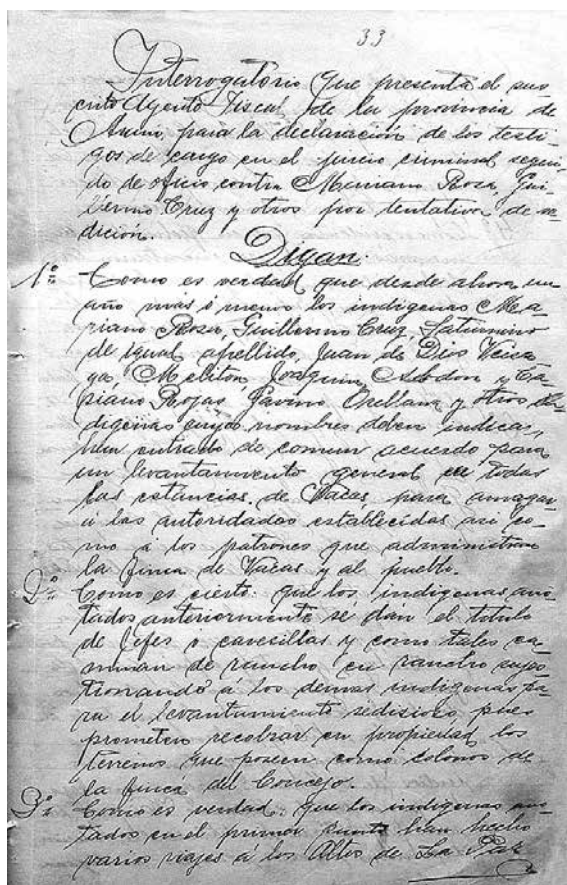 33
Interrogatorio que presenta el sus-
crito Agente Fiscal de la provincia de
Arani, para la declaración de los testi-
gos de cargo en el juicio criminal segui-
do de oficio contra Mariano Rosa, Gui-
llermo Cruz y otros por tentativa de se-
dición.
Digan.
1º Como es verdad que desde ahora un
año mas ó menos los indigenas Ma-
riano Rosa, Guillermo Cruz, Saturnino
de igual apellido, Juan de Dios Veisa
ga, Meliton, Joaquin, Abdon y Ca-
siano Rojas, Gavino Orellana y otros in-
digenas cuyos nombres deben indicar,
han entrado de comun acuerdo para
un levantamiento general en todas
las estancias de Vacas, para amagar
á las autoridades establecidas asi co-
mo á los patrones que administran
la finca de Vacas y al pueblo.
2º Como es cierto: que los indigenas ano-
tados anteriormente se dan el titulo
de Jefes o cavesillas y como tales ca-
minan de rancho en rancho suges-
tionando á los demas indigenas pa-
ra el levantamiento sedisioso, pues
prometen recobrar en propiedad los
terrenos que poseen como colonos de
la finca del Concejo.
3º Como es verdad: que los indigenas ano-
tados en el primer punto han hecho
varios viajes á los Altos de La Paz